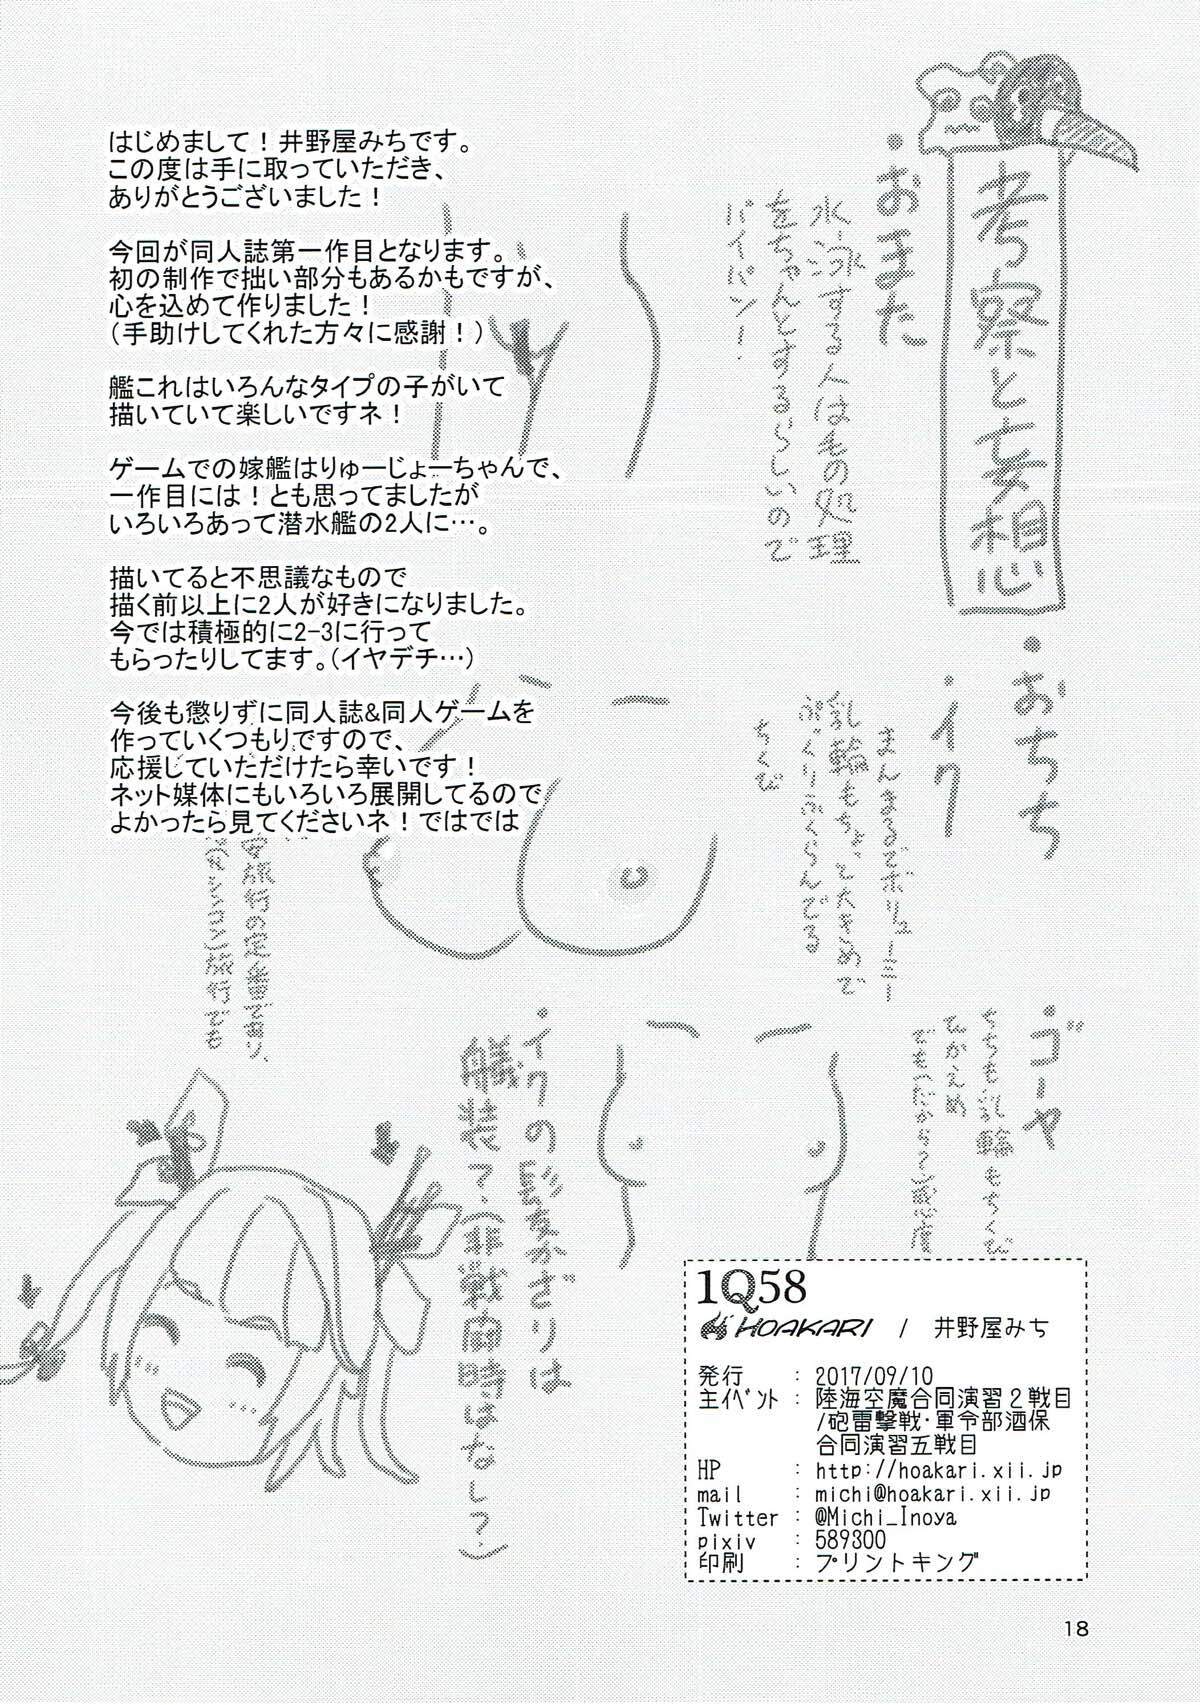 はじめまして！井野屋みちです。
この度は手に取っていただき、
ありがとうございました！
今回が同人誌第一作目となります。
初の制作で拙い部分もあるかもですが、
心を込めて作りました！
（手助けしてくれた方々に感謝！）
艦これはいろんなタイプの子がいて
描いていて楽しいですネ！
ゲームでの嫁艦はりゅーじょーちゃんで、
一作目には！とも思ってましたが
いろいろあって潜水艦の2人に…。
描いてると不思議なもので
描く前以上に2人が好きになりました。
今では積極的に2-3に行って
もらったりしてます。（イヤデチ…）
今後も懲りずに同人誌&同人ゲームを
作っていくつもりですので、
応援していただけたら幸いです！
ネット媒体にもいろいろ展開してるので
よかったら見てくださいネ！ではでは
考察と妄想
・イクの髪かざりは
艤装？（非戦闘時はなし？）
1Q58
HOAKARI / 井野屋みち
発行 : 2017/09/10
主ｲﾍﾞﾝﾄ : 陸海空魔合同演習２戦目
/砲雷撃戦・軍令部酒保
合同演習五戦目
HP : http://hoakari.xii.jp
mail : michi@hoakari.xii.jp
Twitter : @Michi_Inoya
pixiv : 589300
印刷 : プリントキング
18